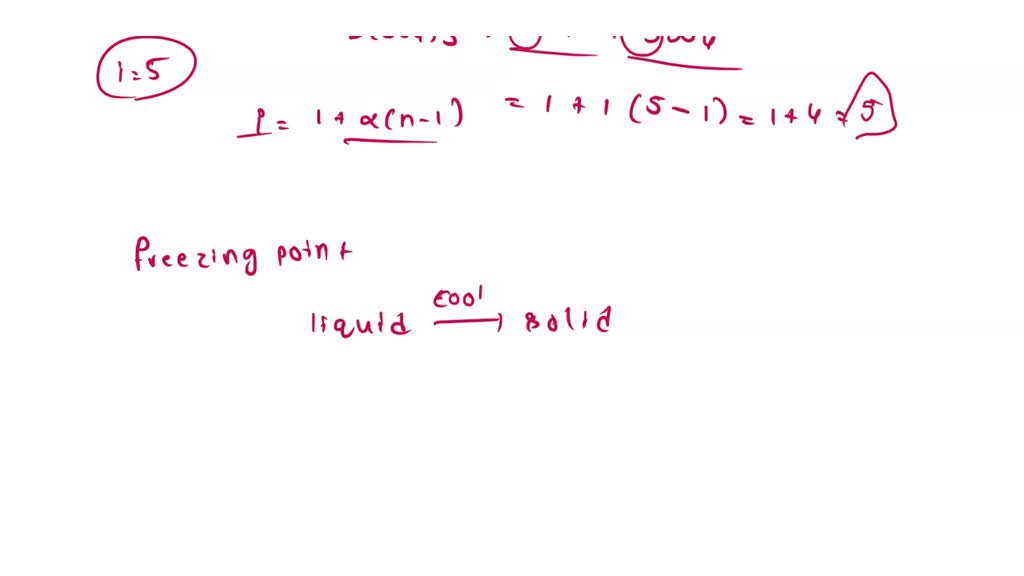 i = 5
i = 1 + α(n-1) = 1 + 1 (5-1) = 1+4 = 5
Freezing point
cool
liquid → solid